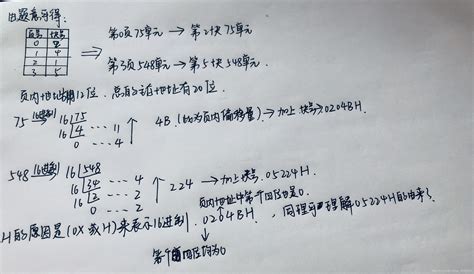 由题意可得:
页号 块号
0 2
1 4
2 1
3 5
⇒ 第0页75单元 → 第2块75单元
第3页548单元 → 第5块548单元.
页内地址用12位. 总的逻辑地址有20位.
75 16进制 16 75
16 4 ··· 11
0 ··· 4
4B. (16为页内偏移量) → 加上块号: 0204BH.
548 16进制 16 548
16 34 ··· 4
16 2 ··· 2
0 ··· 2
224 → 加上块号. 05224H
页内地址中第一个四位是0.
H的原因是(0X或H)来表示16进制. 0204BH, 同理可理解05224H的由来?
第一个四位均为0